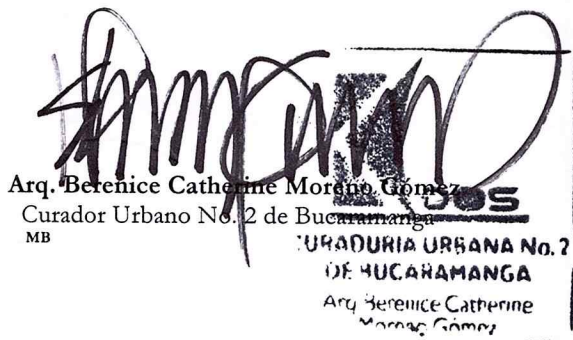 Arq. Berenice Catherine Moreno Gómez
Curador Urbano No. 2 de Bucaramanga
MB
DOS
CURADURIA URBANA No. 2
DE BUCARAMANGA
Arq Berenice Catherine
Moreno Gómez